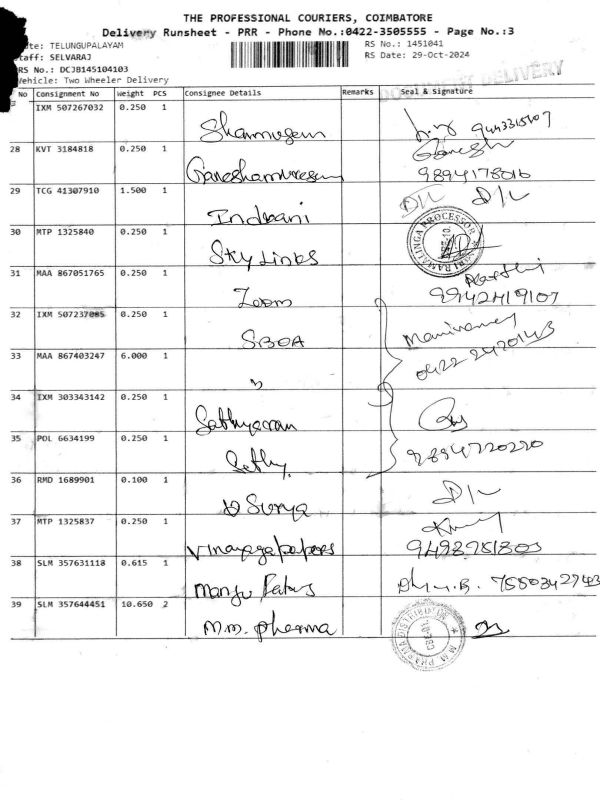 THE PROFESSIONAL COURIERS, COIMBATORE
Delivery Runsheet - PRR - Phone No.:0422-3505555 - Page No.:3
ute: TELUNGUPALAYAM RS No.: 1451041
taff: SELVARAJ RS Date: 29-Oct-2024
RS No.: DCJB145104103
Vehicle: Two Wheeler Delivery DOCUMENT DELIVERY
No Consignment No Weight PCS Consignee Details Remarks Seal & Signature
IXM 507267032 0.250 1 Shanmugam
28 KVT 3184818 0.250 1 Ganeshamurugan Ganesh 9894178016
29 TCG 41307910 1.500 1 Indrani D/L D/L
30 MTP 1325840 0.250 1 Sky Links
31 MAA 867051765 0.250 1 Zoom 9942419107
32 IXM 507237085 0.250 1 SBOA
33 MAA 867403247 6.000 1 " 0422 2470143
34 IXM 303343142 0.250 1
35 POL 6634199 0.250 1 Sethy 9894720220
36 RMD 1689901 0.100 1 Surya D/L
37 MTP 1325837 0.250 1 Vinayaga papers
38 SLM 357631118 0.615 1 Manju
39 SLM 357644451 10.650 2 M.M. Pharma M M PHARMA DISTRIBUTOR